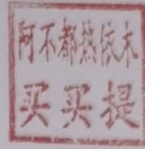 阿不都热依木
买买提